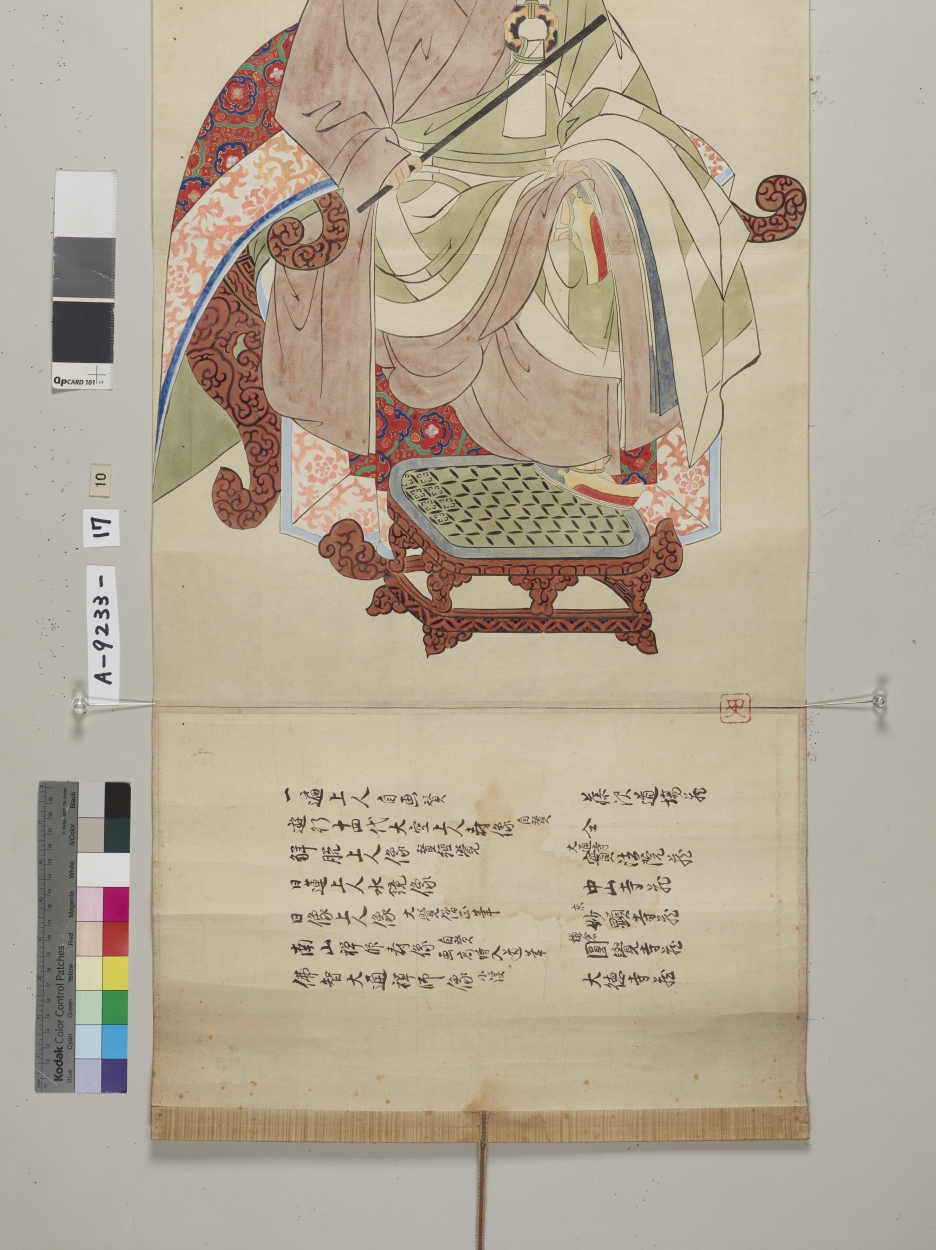 一遍上人自画賛 藤沢道場蔵
遊行十四代太空上人寿像 自賛 仝
解脱上人像 賛経覚 法院蔵
日蓮上人水鏡像 中山寺蔵
日像上人像 大覚僧正筆 京 妙顕寺蔵
南山禅師寿像 自賛 入道筆 鎌倉 圓覺寺蔵
佛智大通禅師像 大徳寺蔵
QPCARD 101
10
17
A-9233-
Kodak Color Control Patches
Blue Cyan Green Yellow Red Magenta White 3/Color Black